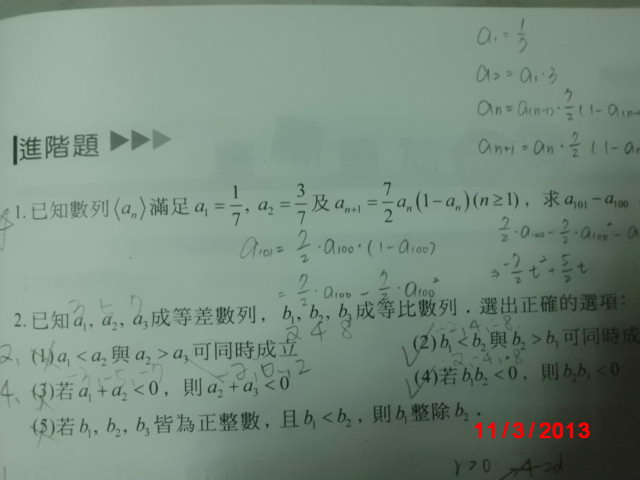 a₁ = 1/7
a₂ = a₁·3
aₙ = a(n-1)·7/2(1-a(n-1
aₙ₊₁ = aₙ·7/2(1-aₙ
進階題
1.已知數列⟨aₙ⟩滿足 a₁=1/7, a₂=3/7 及 aₙ₊₁=7/2 aₙ(1-aₙ)(n≥1),求 a₁₀₁-a₁₀₀
a₁₀₁ = 7/2·a₁₀₀·(1-a₁₀₀) 7/2·a₁₀₀-7/2·a₁₀₀²-a
= 7/2·a₁₀₀-7/2·a₁₀₀² ⇒ -7/2 t²+5/2 t
2.已知 a₁, a₂, a₃ 成等差數列,b₁, b₂, b₃ 成等比數列.選出正確的選項:
2 4 8
(1) a₁<a₂ 與 a₂>a₃ 可同時成立 (2) b₁<b₂ 與 b₂>b₃ 可同時成
(3)若 a₁+a₂<0,則 a₂+a₃<0 (4)若 b₁b₂<0,則 b₂b₃<0
(5)若 b₁, b₂, b₃ 皆為正整數,且 b₁<b₂,則 b₁ 整除 b₂.
11/3/2013
r>0